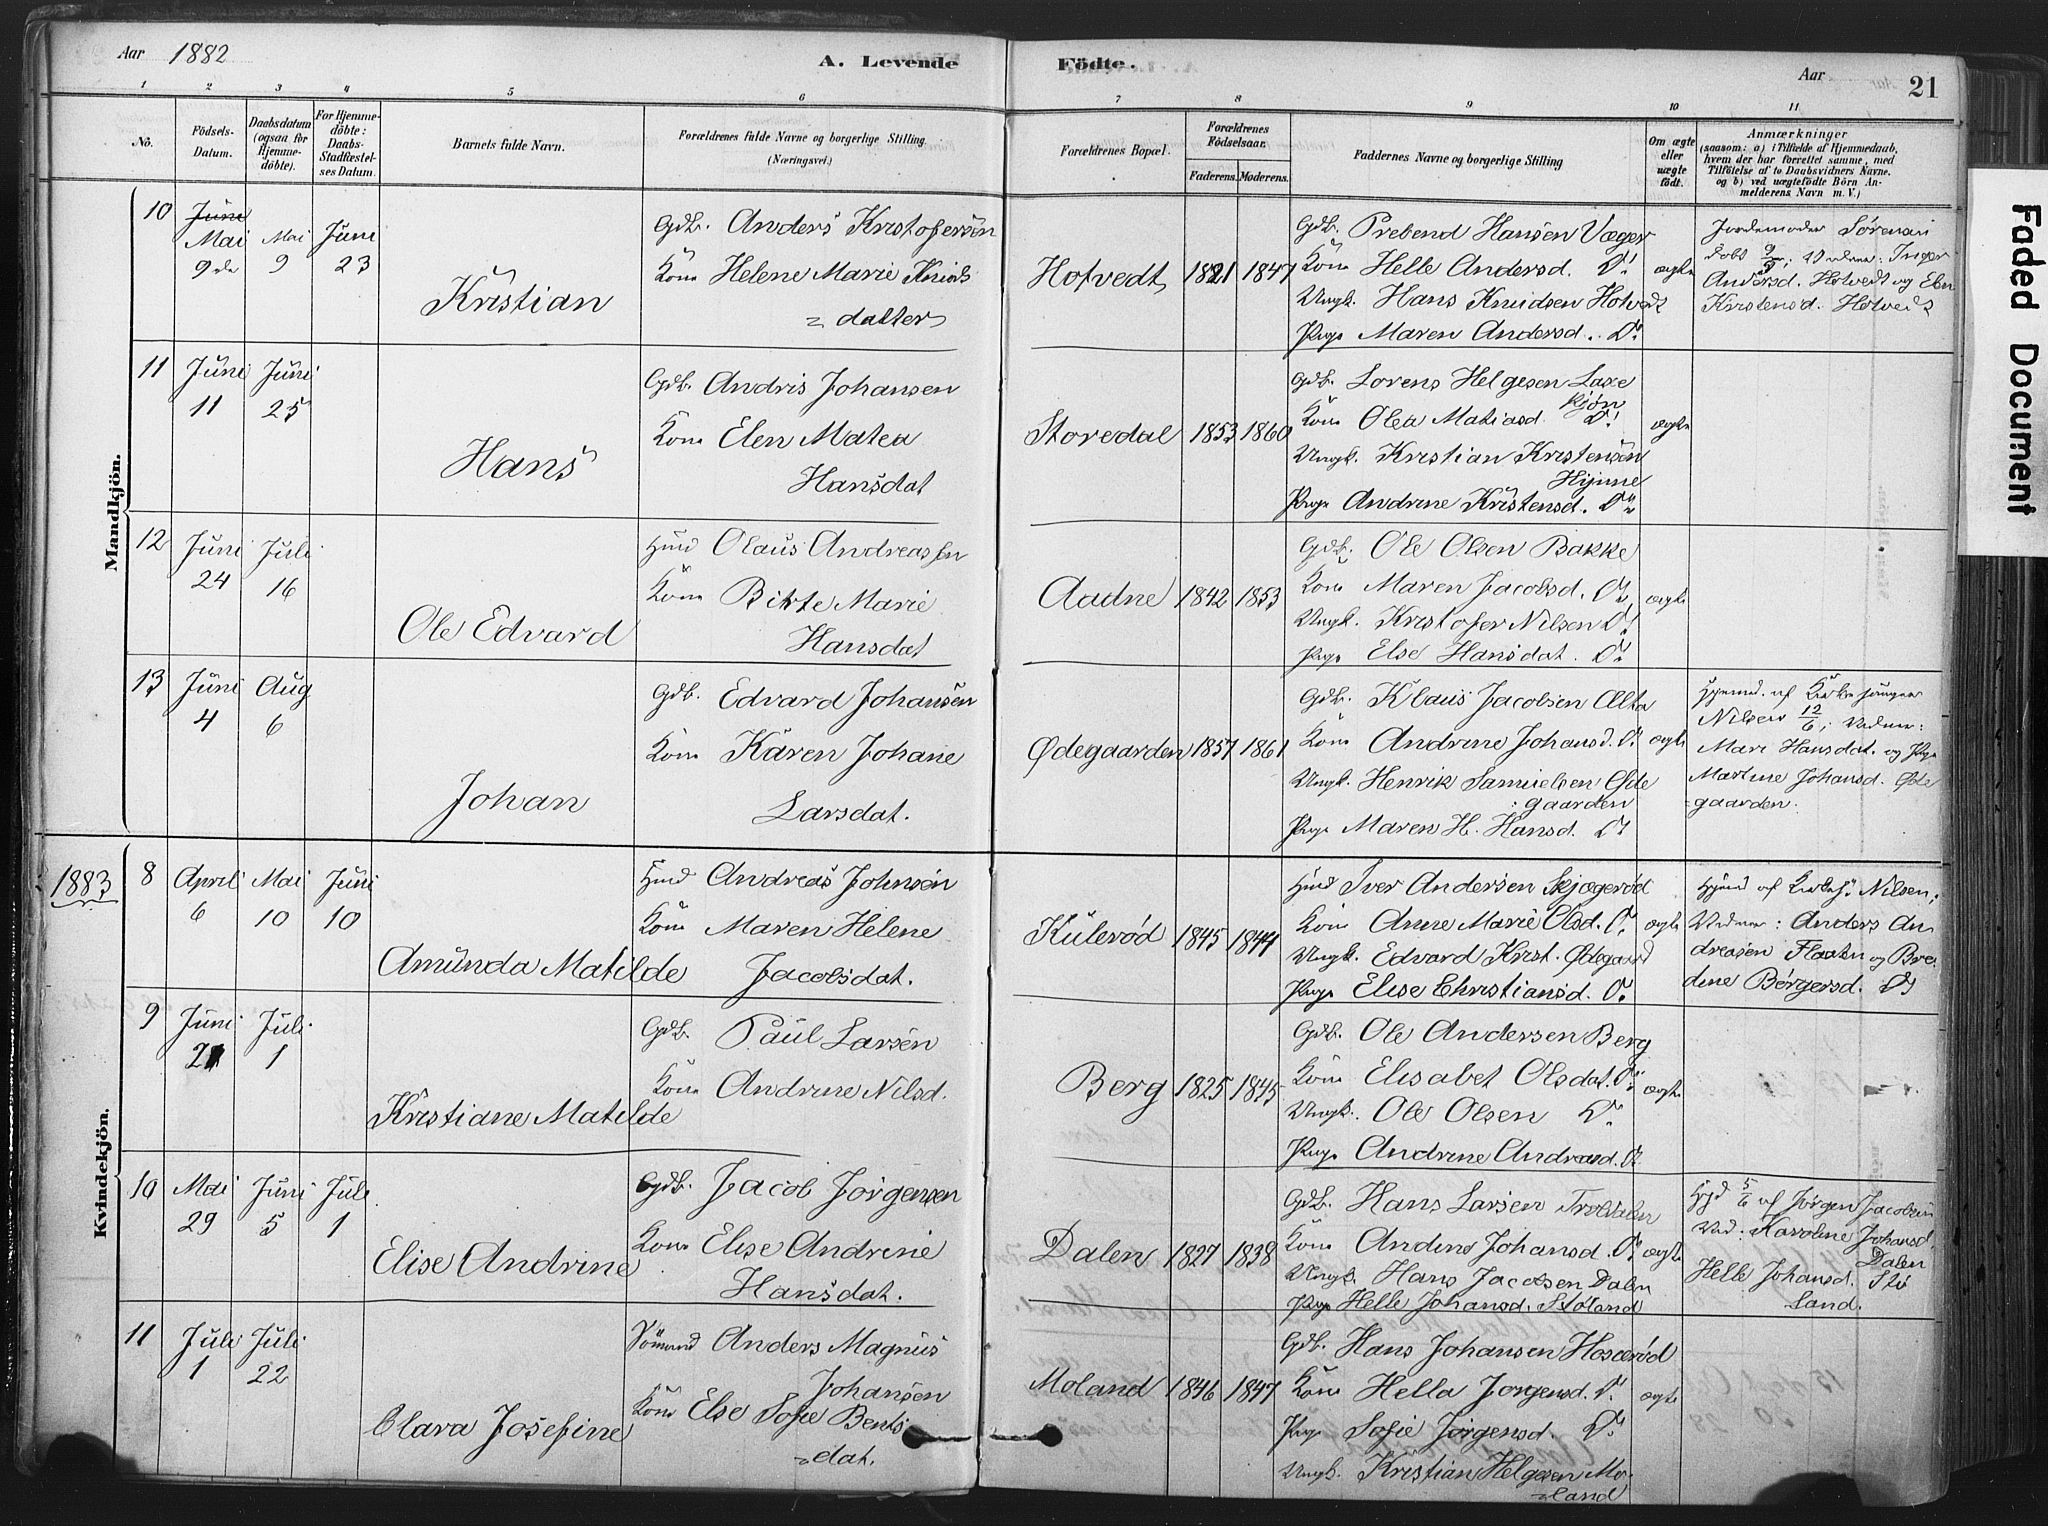 Aar 1882
A. Levende Födte.
Aar
21
1 2 3 4 5 6 7 8 9 10 11
No.
Födsels-Datum.
Daabsdatum (ogsaa for Hjemme-döbte).
For Hjemme-döbte: Daabs-Stadfæstel-ses Datum.
Barnets fulde Navn.
Forældrenes fulde Navne og borgerlige Stilling (Næringsvei.)
Forældrenes Bopæl.
Forældrenes Födselsaar.
Faderens. Moderens.
Faddernes Navne og borgerlige Stilling
Om ægte eller uægte födt.
Anmærkninger
(saasom: a) i Tilfælde af Hjemmedaab,
hvem der har forrettet samme, med
Tilföielse af to Daabsvidners Navne.
og b) ved uægtefödte Börn An-
melderens Navn m. V.)
Mandkjön.
10 Juni Mai 9de Mai 9 Juni 23
Kristian
Gdb. Anders Kristofersön
Kone Helene Marie Knids
= datter
Hofvedt 1821 1847
Gdb. Prebend Hansen Væger
Kone Helle Andersd. Do
Ungk. Hans Knudsen Hotvedt
Pige Maren Andersd. Do
ægte
Jordemoder Sørensen
Døbt 9/5; Vidner: Inger
Andersd. Hotvedt og Elen
Kirstensd. Hotvedt
11 Juni 11 Juni 25
Hans
Gdb. Andris Johansen
Kone Elen Matea
Hansdat
Storedal 1853 1860
Gdb. Lorens Helgesen Laxe
kjøn
Kone Olea Matiasd. Do
Ungk. Kristian Kristensön
Hijnne
Pige Andrine Kristensd. Do
ægte
12 Juni 24 Juli 16
Ole Edvard
Hmd Olaus Andreassen
Kone Birte Marie
Hansdat
Aadne 1842 1853
Gdb. Ole Olsen Bakke
Kone Maren Jacobsd. Do
Ungk. Kristofer Nilsen Do
Pige Else Hansdat. Do
ægte
13 Juni 4 Aug 6
Johan
Gdb. Edvard Johansen
Kone Karen Johane
Larsdat.
Ødegaarden 1857 1861
Gdb. Klaus Jacobsen Alta
Kone Andrine Johansd. Do
Ungk. Henrik Samuelsen Øde
gaarden
Pige Maren H. Hansd. Do
ægte
Hjemd. af Kirkesanger
Nilsen 12/6; Vidner:
Mari Hansdat. og Pige
Martine Johansd. Øde
=gaarden.
1883
Kvindekjön.
8 April 6 Mai 10 Juni 10
Amunda Matilde
Hmd Andreas Johnsen
Kone Maren Helene
Jacobsdat.
Kulerød 1845 1844
Hmd Iver Andersen Skjøgerød
Kone Anne Marie Olsd. Do
Ungk. Edvard Krist. Ødegaard
Pige Elise Christiansd. Do
ægte
Hjemd af Kirkes. Nilsen;
Vidner: Anders An
dreasen Flaaten og Bre
dine Børgersd. Do
9 Juni 21 Juli 1
Kristiane Matilde
Gdb. Paul Larsen
Kone Andrine Nilsd.
Berg 1825 1845
Gdb. Ole Andersen Berg
Kone Elisabet Olsdat. Do
Ungk. Ole Olsen Do
Pige Andrine Andreasd. Do
ægte
10 Mai 29 Juni 5 Juli 1
Elise Andrine
Gdb. Jacob Jørgensen
Kone Elise Andrine
Hansdat.
Dalen 1827 1838
Gdb. Hans Larsen Troldalen
Kone Anders Johansd. Do
Ungk. Hans Jacobsen Dalen
Pige Helle Johansd. Støland
ægte
Hjd 5/6 af Jørgen Jacobsen
Vid: Karoline Johansd.
Dalen
Helle Johansd. Stø
Land.
11 Juli 1 Juli 22
Clara Josefine
Sömand Anders Magnus
Johansen
Kone Else Sofie Bents
=dat.
Moland 1846 1847
Gdb. Hans Johansen Hosærød
Kone Hella Jorgensd. Do
Pige Sofie Jørgensd. Do
Ungk. Kristian Helgesen Mo-
=land
ægte
Faded Document